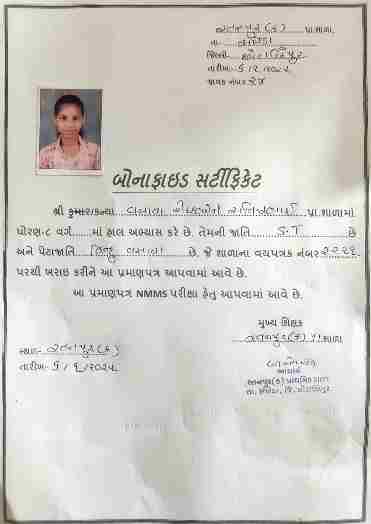 રતનપુર(ક) પ્રા.શાળા,
તા:- નસવાડી
જિલ્લો:- છોટાઉદેપુર
તારીખ:- ૬/૨/૨૦૨૫
બોનાફાઇડ સર્ટીફિકેટ
શ્રી કુમાર/કન્યા પ્રા.શાળામાં
ધોરણ-૮ વર્ગ માં હાલ અભ્યાસ કરે છે. તેમની જાતિ S.T છે
અને પેટાજાતિ હિન્દુ છે. જે શાળાના વયપત્રક નંબર ૨૦૨૬
પરથી ખરાઇ કરીને આ પ્રમાણપત્ર આપવામાં આવે છે.
આ પ્રમાણપત્ર NMMS પરીક્ષા હેતુ આપવામાં આવે છે.
મુખ્ય શિક્ષક
રતનપુર(ક) પ્રા શાળા
સ્થળ:- રતનપુર(ક)
તારીખ:- ૬/૨૦૨૫
આચાર્ય
રતનપુર(ક) પ્રાથમિક શાળા
તા. નસવાડી, જિ. છોટાઉદેપુર